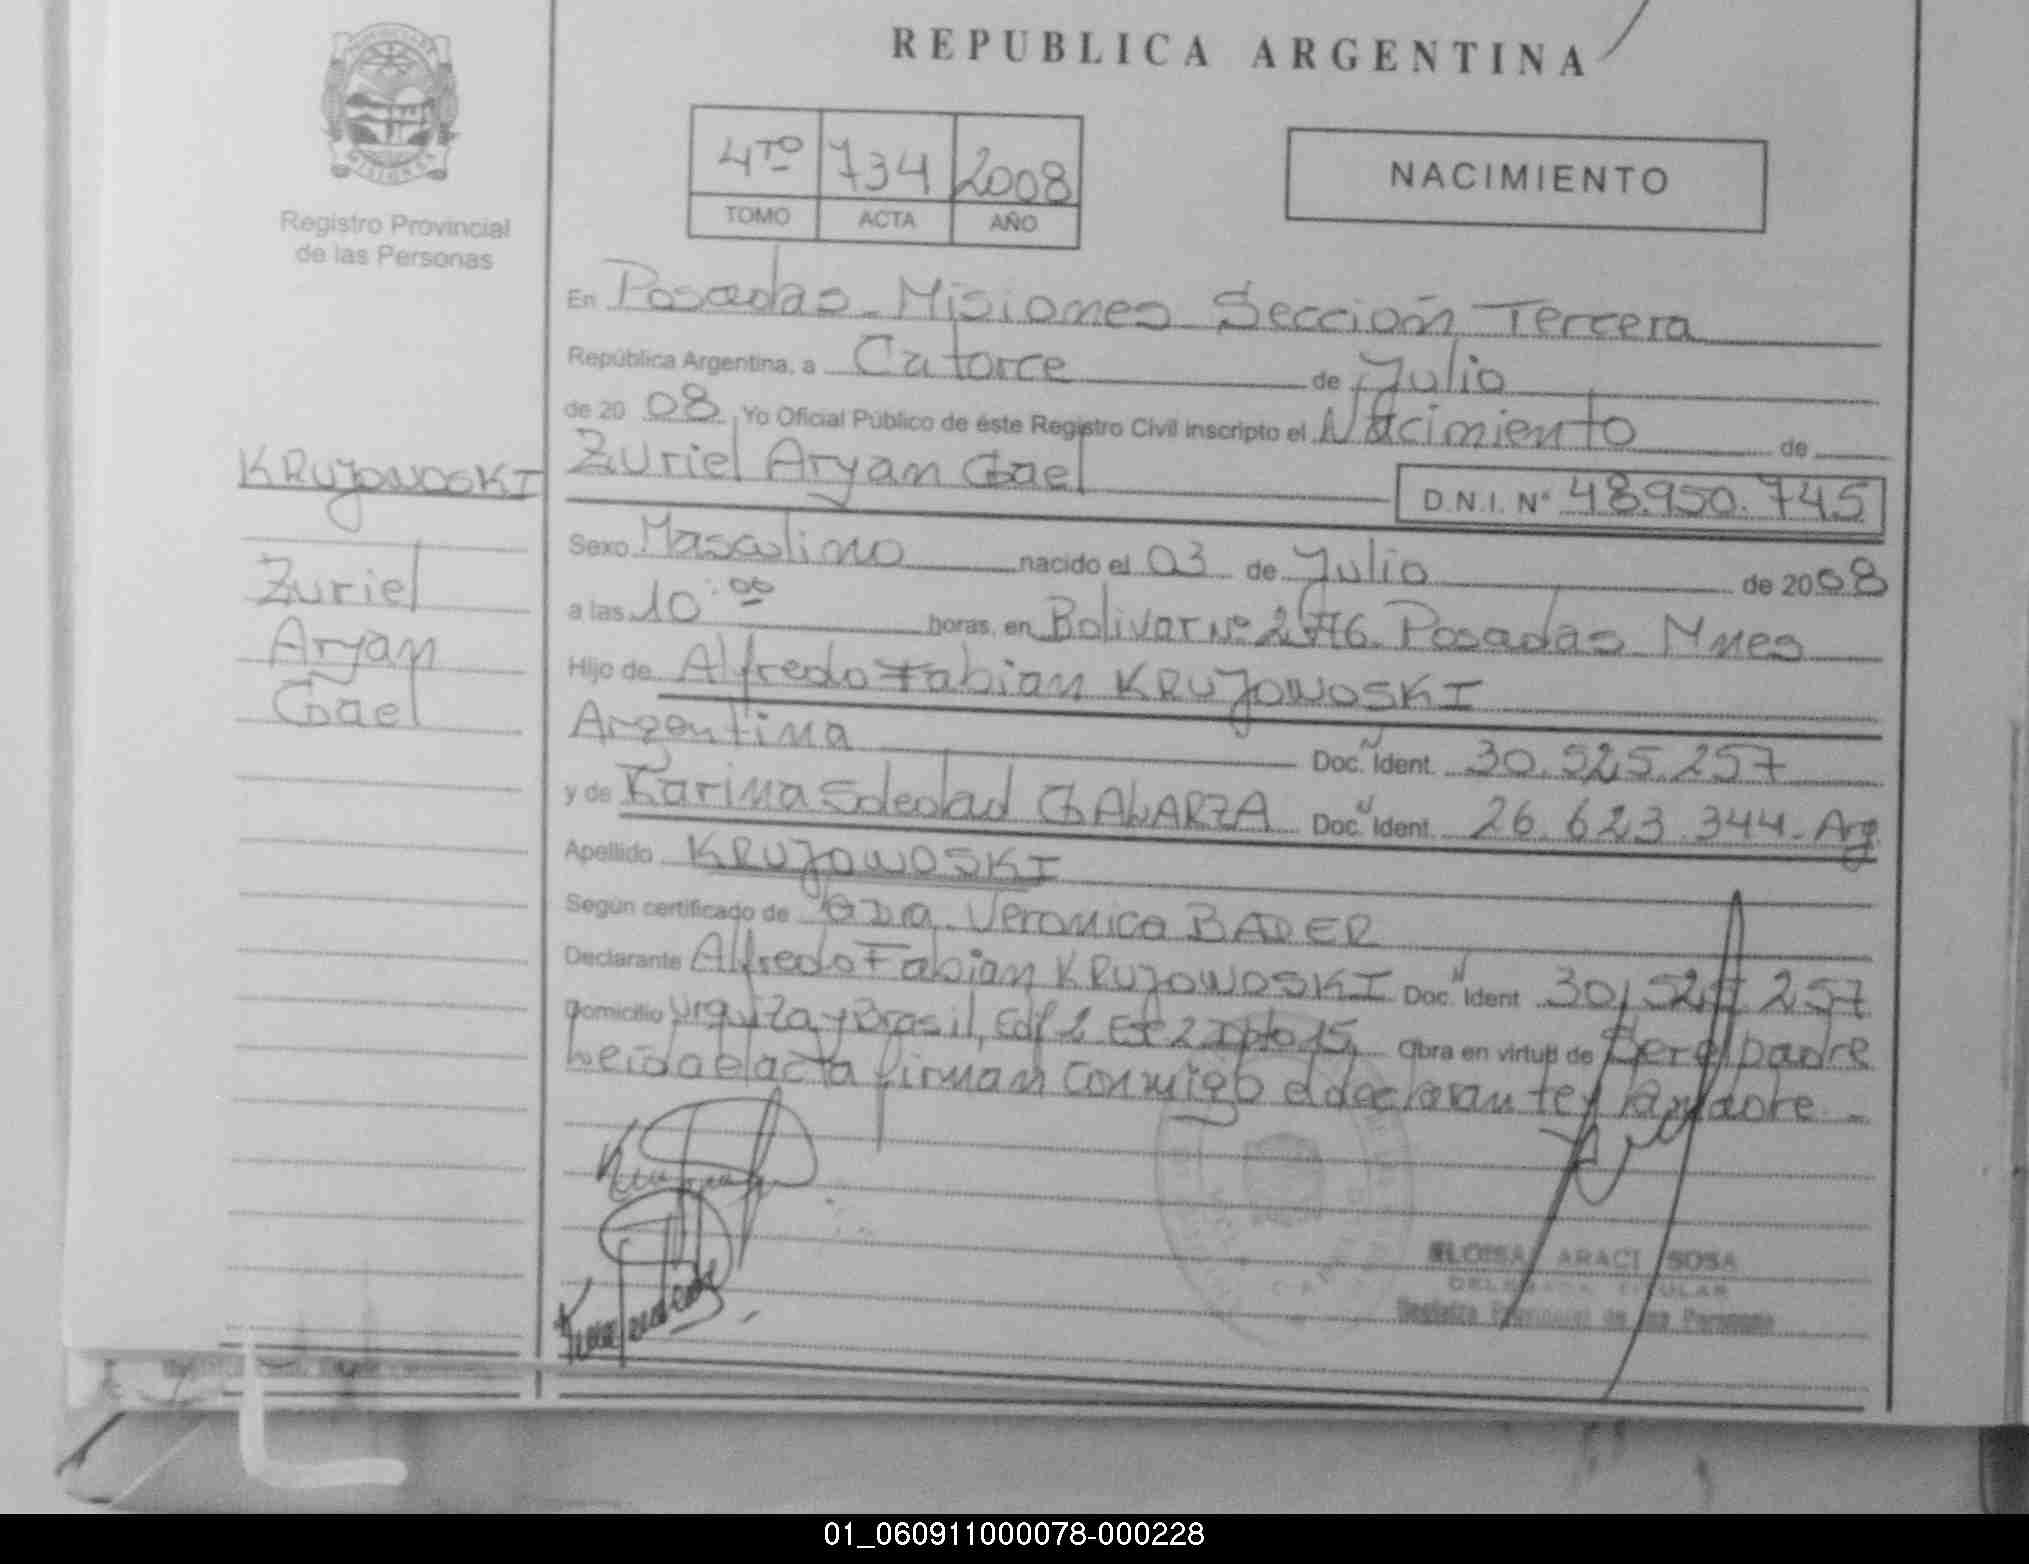 REPUBLICA ARGENTINA
Registro Provincial
de las Personas
4TO 734 2008
TOMO ACTA AÑO
NACIMIENTO
En Posadas - Misiones Sección Tercera
República Argentina, a Catorce de Julio
de 20 08 Yo Oficial Público de éste Registro Civil inscripto el Nacimiento de
Zuriel Aryam Gael D.N.I. N° 48.950.745
KRUJOWOSKI
Zuriel
Aryam
Gael
Sexo Masculino nacido el 03 de Julio de 2008
a las 10:00 horas, en Bolivar Nº Posadas Mnes
Hijo de Alfredo Fabian KRUJOWOSKI
Argentina Doc. Ident. 30.525.257
y de Karina Soledad GALARZA Doc. Ident. 26.623.344 - Arg
Apellido KRUJOWOSKI
Según certificado de Dra. Veronica BADER
Declarante Alfredo Fabian KRUJOWOSKI Doc. Ident 30.525.257
Domicilio Urquiza y Brasil, Edf 2 Esc 2 Dpto 15, Obra en virtud de Ser el padre
Leida el acta firman conmigo el declarante y la madre -
ELOISA ARACI SOSA
DELEGADA TITULAR
Registro Provincial de las Personas
01_060911000078-000228